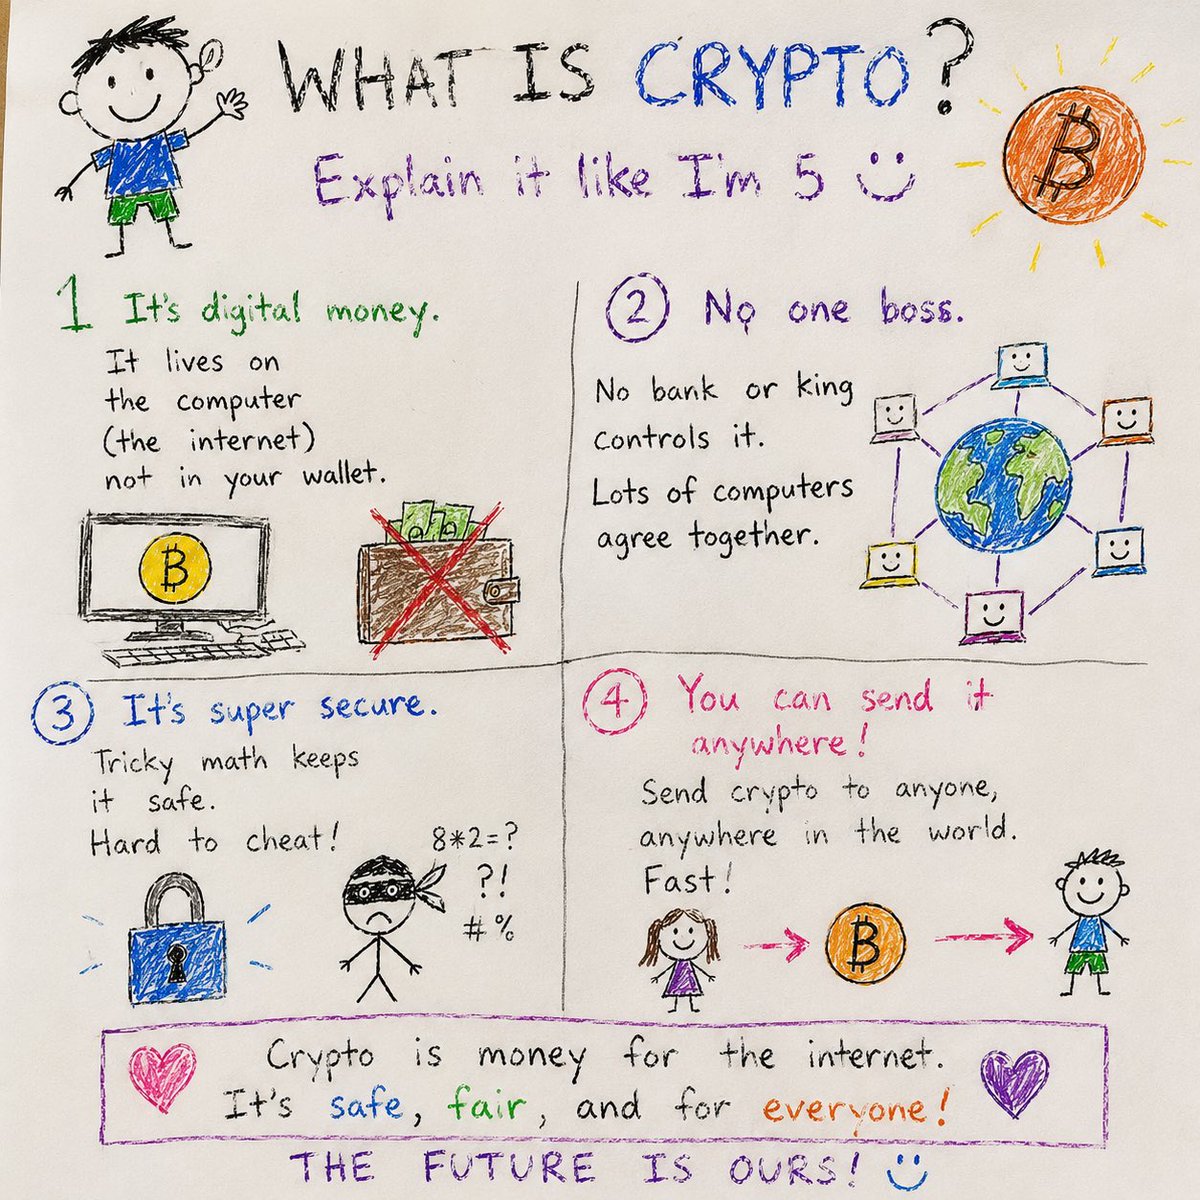 WHAT IS CRYPTO?
Explain it like I'm 5
1 It's digital money.
It lives on
the computer
(the internet)
not in your wallet.
2 No one boss.
No bank or king
controls it.
Lots of computers
agree together.
3 It's super secure.
Tricky math keeps
it safe.
Hard to cheat!
8*2=?
?!
#%
4 You can send it
anywhere!
Send crypto to anyone,
anywhere in the world.
Fast!
Crypto is money for the internet.
It's safe, fair, and for everyone!
THE FUTURE IS OURS!